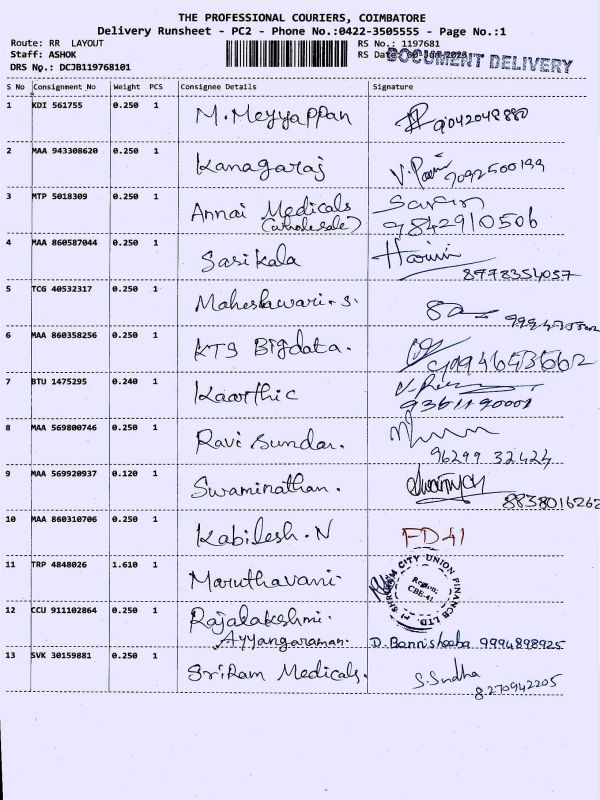 THE PROFESSIONAL COURIERS, COIMBATORE
Delivery Runsheet - PC2 - Phone No.:0422-3505555 - Page No.:1
Route: RR LAYOUT RS No.: 1197681
Staff: ASHOK RS Date: 30-Jun-2023
DOCUMENT DELIVERY
DRS No.: DCJB119768101
S No Consignment No Weight PCS Consignee Details Signature
1 KDI 561755 0.250 1 M. Meyyappan 9042048880
2 MAA 943308620 0.250 1 Kanagaraj 9092500199
3 MTP 5018309 0.250 1 Annai Medicals
(wholesale) 9842910506
4 MAA 860587044 0.250 1 Sasikala Harini
8778354057
5 TCG 40532317 0.250 1 Maheshawari. S.
6 MAA 860358256 0.250 1 KTS Bigdata.
7 BTU 1475295 0.240 1 Kaarthic
9361190001
8 MAA 569800746 0.250 1 Ravi Sundar.
96299 32424
9 MAA 569920937 0.120 1 Swaminathan.
8838016262
10 MAA 860310706 0.250 1 Kabilesh. N FD41
11 TRP 4848026 1.610 1 Maruthavani
SHRIRAM CITY UNION FINANCE LTD.
Region:
CBE-41
12 CCU 911102864 0.250 1 Rajalakshmi.
Ayyangaraman. D. Bennisheeba 9994898925
13 SVK 30159881 0.250 1 SriRam Medicals. S. Sudha
8270942205